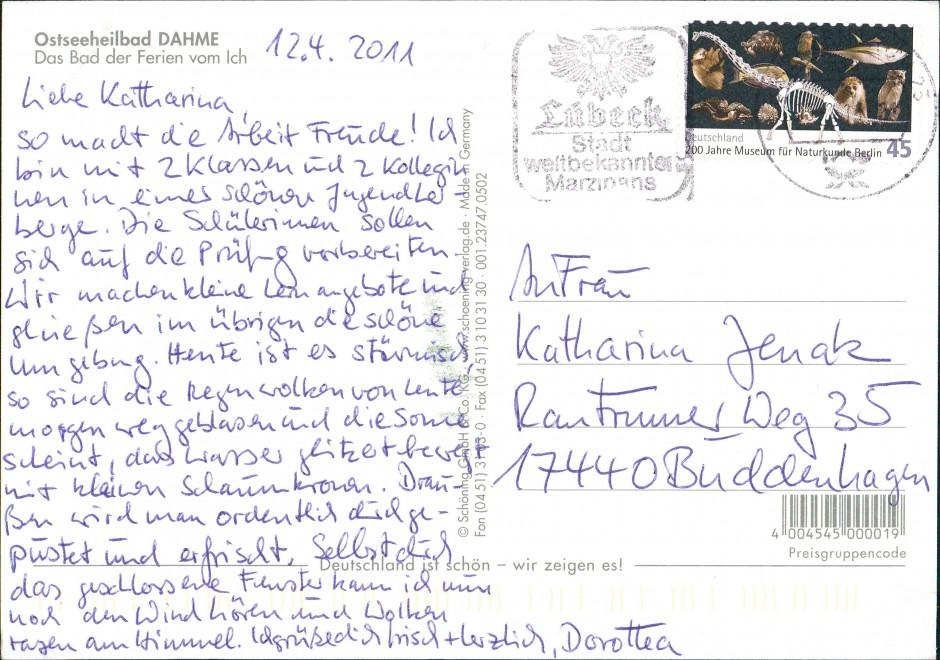 Ostseeheilbad DAHME
Das Bad der Ferien vom Ich
12.4. 2011
Liebe Katharina,
so macht die Arbeit Freude! Ich
bin mit 2 Klassen und 2 Kollegin
nen in einer schönen Jugendher
berge. Die Schülerinnen sollen
sich auf die Prüfung vorbereiten.
Wir machen kleine Lernangebote und
genießen im übrigen die schöne
Umgebung. Heute ist es stürmisch,
so sind die Regenwolken von heute
morgen weggeblasen und die Sonne
scheint, das Wasser glitzert bewegt
mit kleinen Schaumkronen. Drau
ßen wird man ordentlich durchge-
pustet und erfrischt. Selbst durch
das geschlossene Fenster kann ich nun
noch den Wind hören und Wolken
rasen am Himmel. Ich grüße dich frisch + herzlich, Dorothea
© Schöning GmbH & Co. KG · www.schoening-verlag.de · Made in Germany
Fon (04 51) 3 10 3-0 · Fax (04 51) 3 10 31 30 · 001.23747.0502
Deutschland ist schön – wir zeigen es!
Lübeck
Stadt
weltbekannten
Marzipans
Deutschland
200 Jahre Museum für Naturkunde Berlin 45
An Frau
Katharina Jenak
Weg 35
17440 Buddenhagen
4 004545 000019
Preisgruppencode